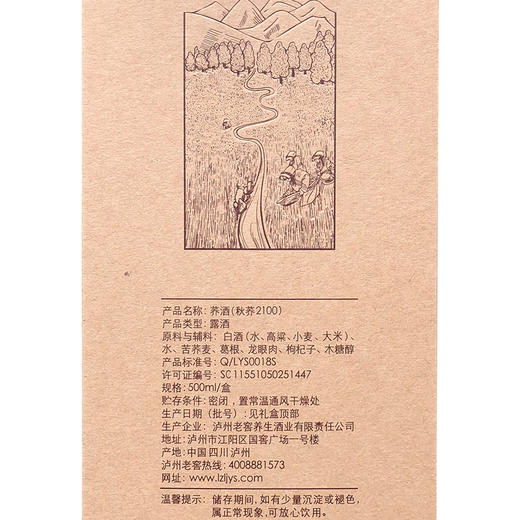 产品名称：荞酒（秋荞2100）
产品类型：露酒
原料与辅料：白酒（水、高粱、小麦、大米）、
水、苦荞麦、葛根、龙眼肉、枸杞子、木糖醇
产品标准号：Q/LYS0018S
许可证编号：SC11551050251447
规格：500ml/盒
贮存条件：密闭，置常温通风干燥处
生产日期（批号）：见礼盒顶部
生产企业：泸州老窖养生酒业有限责任公司
地址：泸州市江阳区国窖广场一号楼
产地：中国四川泸州
泸州老窖热线：4008881573
网址：www.lzljys.com
温馨提示：储存期间，如有少量沉淀或褪色，
属正常现象，可放心饮用。